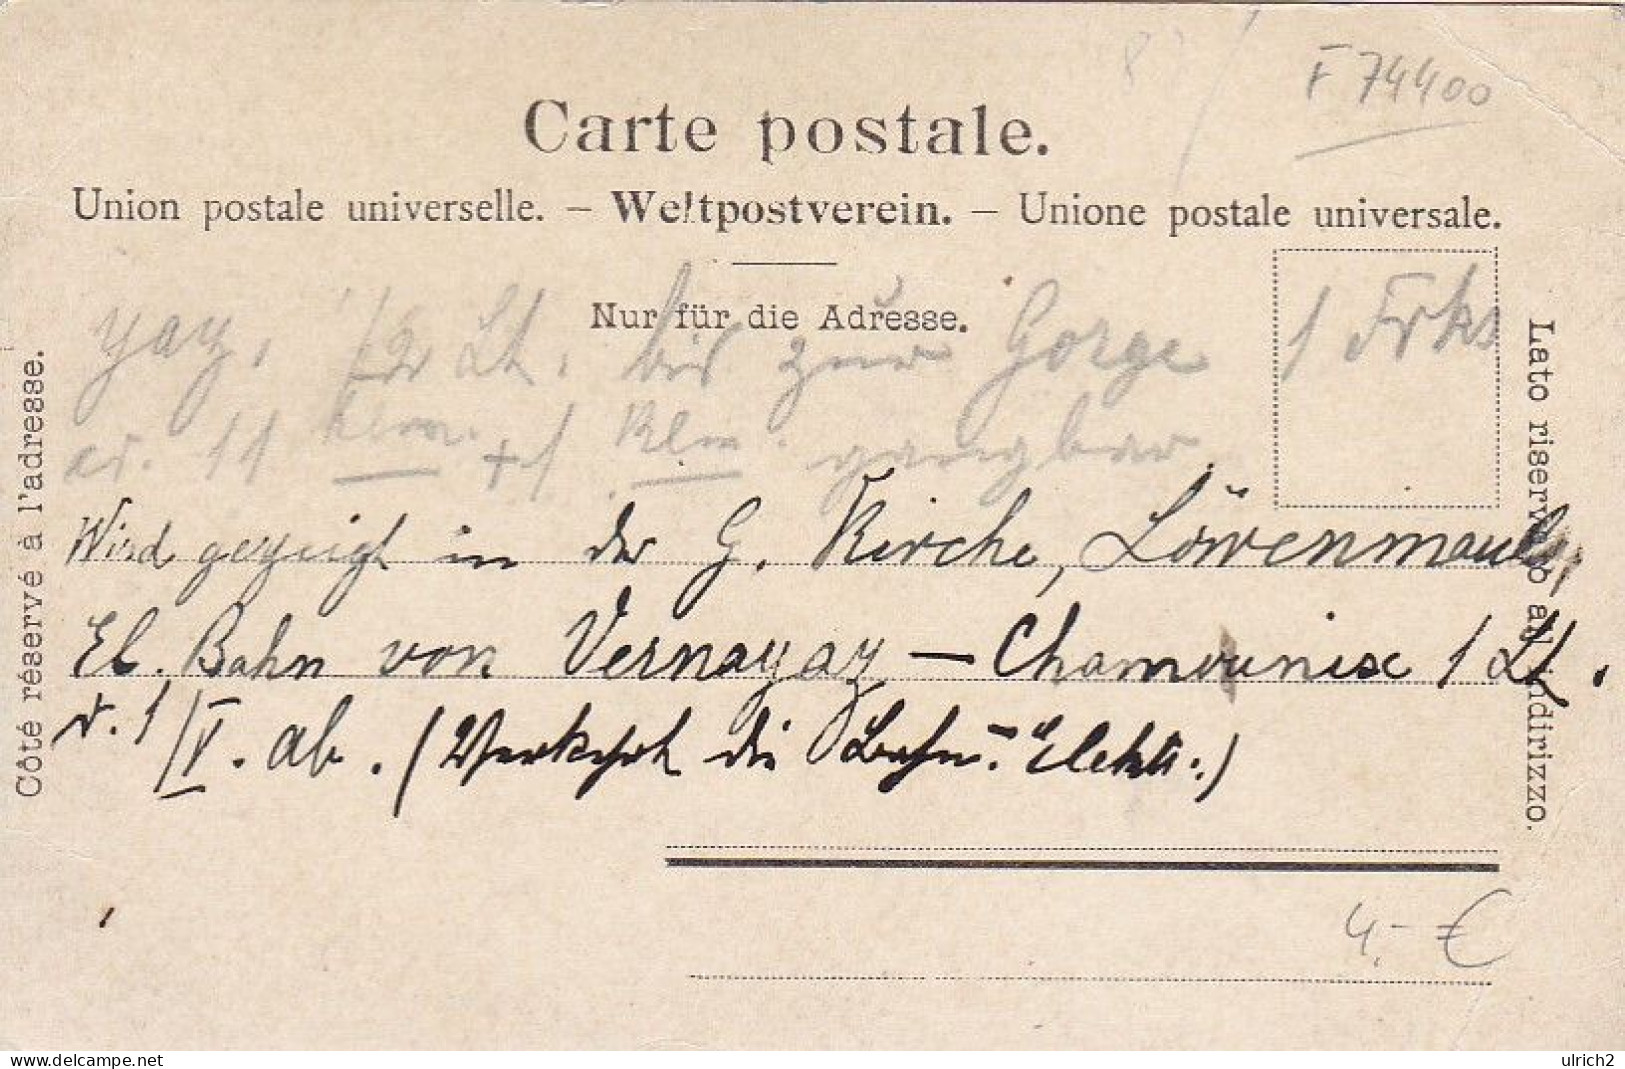 F 74400
Carte postale.
Union postale universelle. — Weltpostverein. — Unione postale universale.
Nur für die Adresse.
Côté réservé à l'adresse.
Lato riservato all'indirizzo.
yaz, 1/2 St. bis zur Gorge 1 Frks
11 klm. + 1 Klm. gangbar
Wird gezeigt in der G. Kirche, Löwenmaul,
El. Bahn von Vernayaz — Chamounix 1 St.
v. 1/V. ab. (Verkehrt die Bahn. Elektr.)
4.- €
delcampe.net
ulrich2